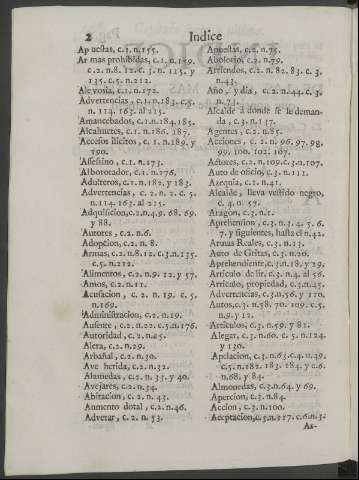 2 Indice
Apuestas, c.1. n.155.
Armas prohibidas, c.1. n.159.
c.2. n.8. 12. c. 3. n. 115. y
135. c.5. n.212.
Alevosia, c.1. n.172.
Advertencias, c.1.n.183. c.5.
n. 114. 163. al 215.
Amancebados, c.1.n.184.185.
Alcahuetes, c.1. n.186. 187.
Accesos ilicitos, c. 1. n.189. y
190.
Assesino, c.1. n.173.
Alborotador, c.1. n.276.
Adulteros, c.1. n.182. y 183.
Advertencias, c. 2. n. 2. c. 5.
n.114. 163. al 215.
Adquisicion, c.2.n.4.9. 68. 69.
y 88.
Autores, c.2. n.6.
Adopcion, c.2. n. 8.
Armas, c.2. n.8.12. c.3.n.135.
c.5. n.212.
Alimentos, c.2. n.9. 12. y 57.
Amos, c.2. n.11.
Acusacion, c. 2. n. 19. c. 5.
n.169.
Administracion, c.2. n.19.
Ausente, c.2. n.22. c.5. n.176.
Autoridad, c.2. n.25.
Alera, c.2. n.29.
Arbañal, c.2. n.30.
Ave herida, c.2. n.32.
Alamedas, c.2. n.35. y 40.
Avejares, c.2. n.34.
Abitacion, c.2. n. 43.
Aumento dotal, c.2. n.46.
Adverar, c.2. n. 53.
Apuestas, c.2. n.75.
Abolorio, c.2. n.79.
Arriendos, c.2. n. 82. 83. c. 3.
n.43.
Año, y dia, c.2. n.44. c. 3.
n.73.
Alcalde à donde se le deman-
da, c.3. n.137.
Agentes, c.2. n.85.
Acciones, c.2. n. 96. 97. 98.
99. 100. 102. 107.
Actores, c.2. n.109. c.3.n.107.
Auto de oficio, c.3. n.111.
Azequia, c.1. n.41.
Alcalde, lleva vestido negro,
c. 4. n. 57.
Aragon, c.3. n.1.
Aprehension, c.3. n.3. 4. 5. 6.
7. y siguientes, hasta el n.42.
Armas Reales, c.3. n.13.
Auto de Gritas, c.3. n.20.
Aprehendiente, c.3.n.18. y 29.
Articulo de lit. c.3. n.4. al 56.
Articulo, propiedad, c.3. n.45.
Advertencias, c.3.n.56. y 120.
Autos, c.3. n.58. 70. 109. c.5.
n.9. y 12.
Articulos, c.3. n.59. y 82.
Alegar, c.3. n.60. c. 5. n.124.
y 130.
Apelacion, c.3. n.63. c.4. n.49.
c.5. n.182. 183. 184. y c.6.
n.68. y 84.
Almonedas, c.3.n.64. y 69.
Apercion, c.3. n.84.
Accion, c.3. n.100.
Aceptacion, c.5.n.217. c.6.n.3.
As-